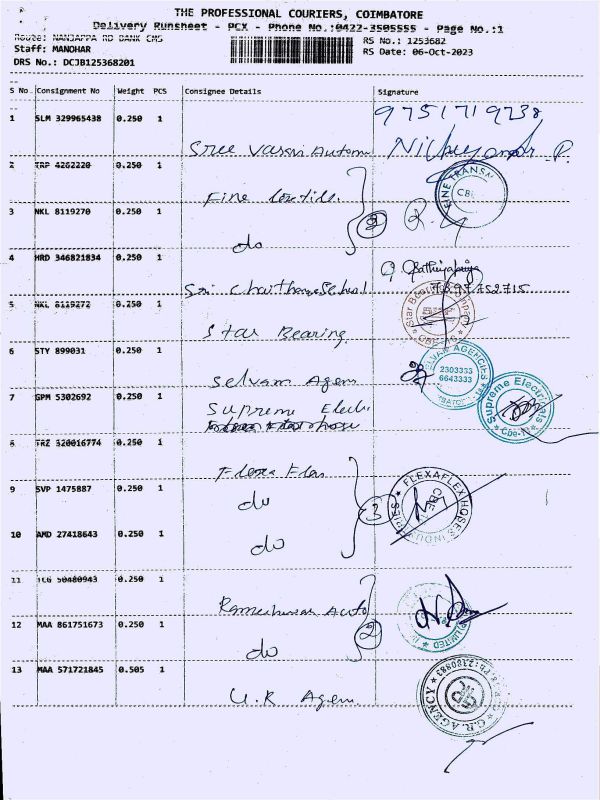 THE PROFESSIONAL COURIERS, COIMBATORE
Delivery Runsheet - PCX - Phone No.:0422-3505555 - Page No.:1
Route: NANJAPPA RD BANK CMS
RS No.: 1253682
Staff: MANOHAR
RS Date: 06-Oct-2023
DRS No.: DCJB125368201
S No Consignment No Weight PCS Consignee Details Signature
9751719238
1 SLM 329965438 0.250 1
Sree Vasavi Autom
2 TRP 4262220 0.250 1
Fine
FINE TRANS
CBE
3 NKL 8119270 0.250 1
do
2
4 HRD 346821834 0.250 1
Sri
5 NKL 8119272 0.250 1
Star Bearing
6 STY 899031 0.250 1
Selvam Agem
SELVAM AGENCIES
2303333
6643333
7 GPM 5302692 0.250 1
Supreme Elect
Supreme Electricals
Cbe-1
8 TRZ 320016774 0.250 1
Flexa Flex
9 SVP 1475887 0.250 1
do
3
FLEXAFLEX HOSES
10 AMD 27418643 0.250 1
do
11 TCG 50480943 0.250 1
Rameshwar Auto
LIMITED
12 MAA 861751673 0.250 1
do
2
13 MAA 571721845 0.505 1
U.R Agem
G.R. AGENCY